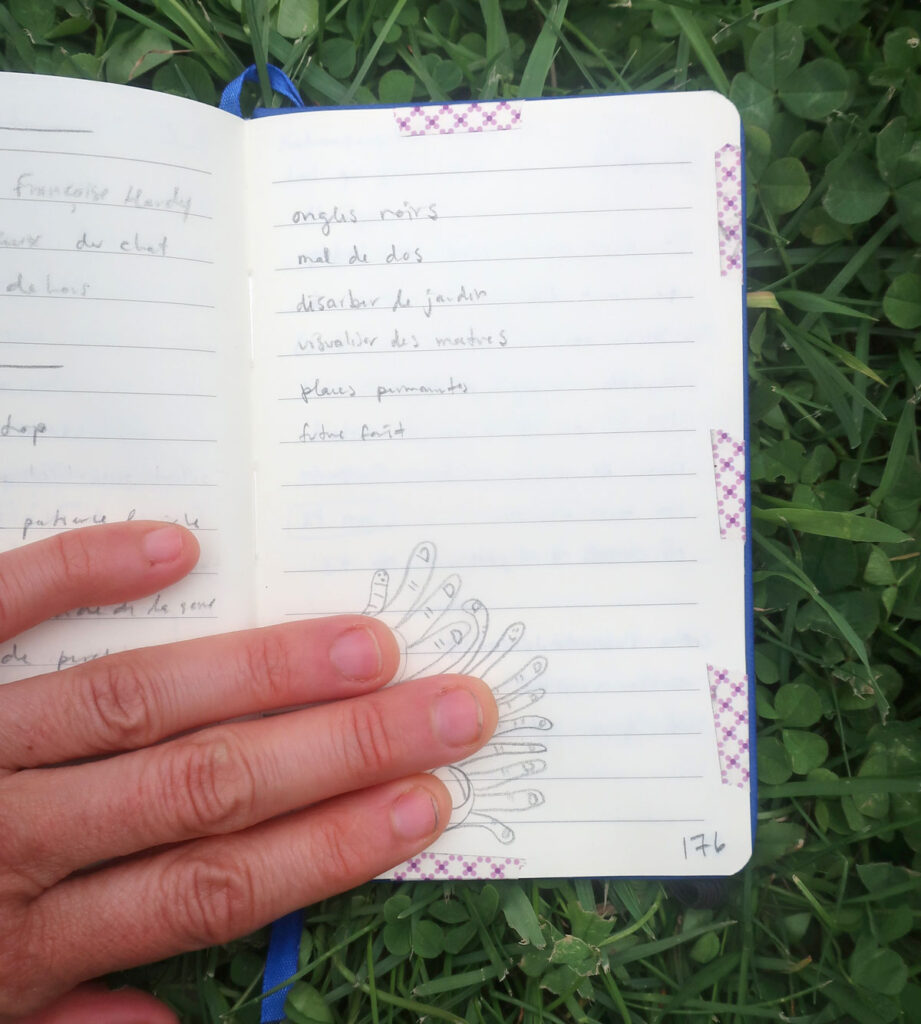 Françoise Hardy
du chat
dehors
trop
patience
de la
de
ongles noirs
mal de dos
désherber le jardin
visualiser des mètres
places permanentes
future forêt
176